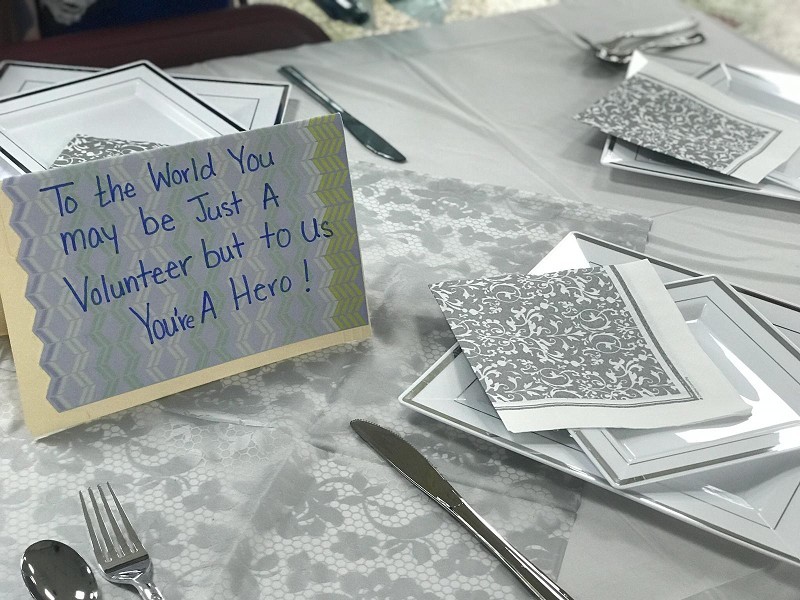 To the World You
may be Just A
Volunteer but to us
You're A Hero!